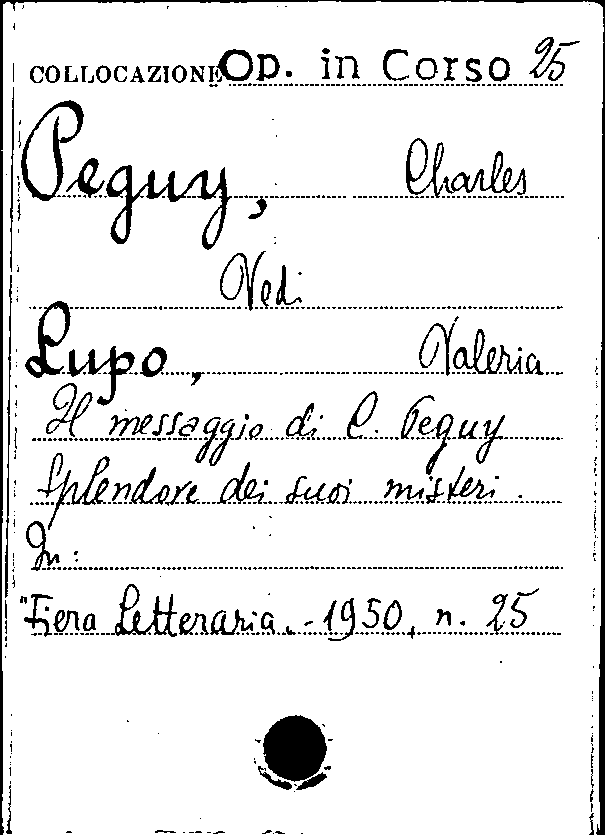 COLLOCAZIONE Op. in Corso 25
Peguy, Charles
Vedi
Lupo, Valeria
Il messaggio di C. Peguy
Splendore dei suoi misteri.
In:
"Fiera Letteraria.-1950, n. 25